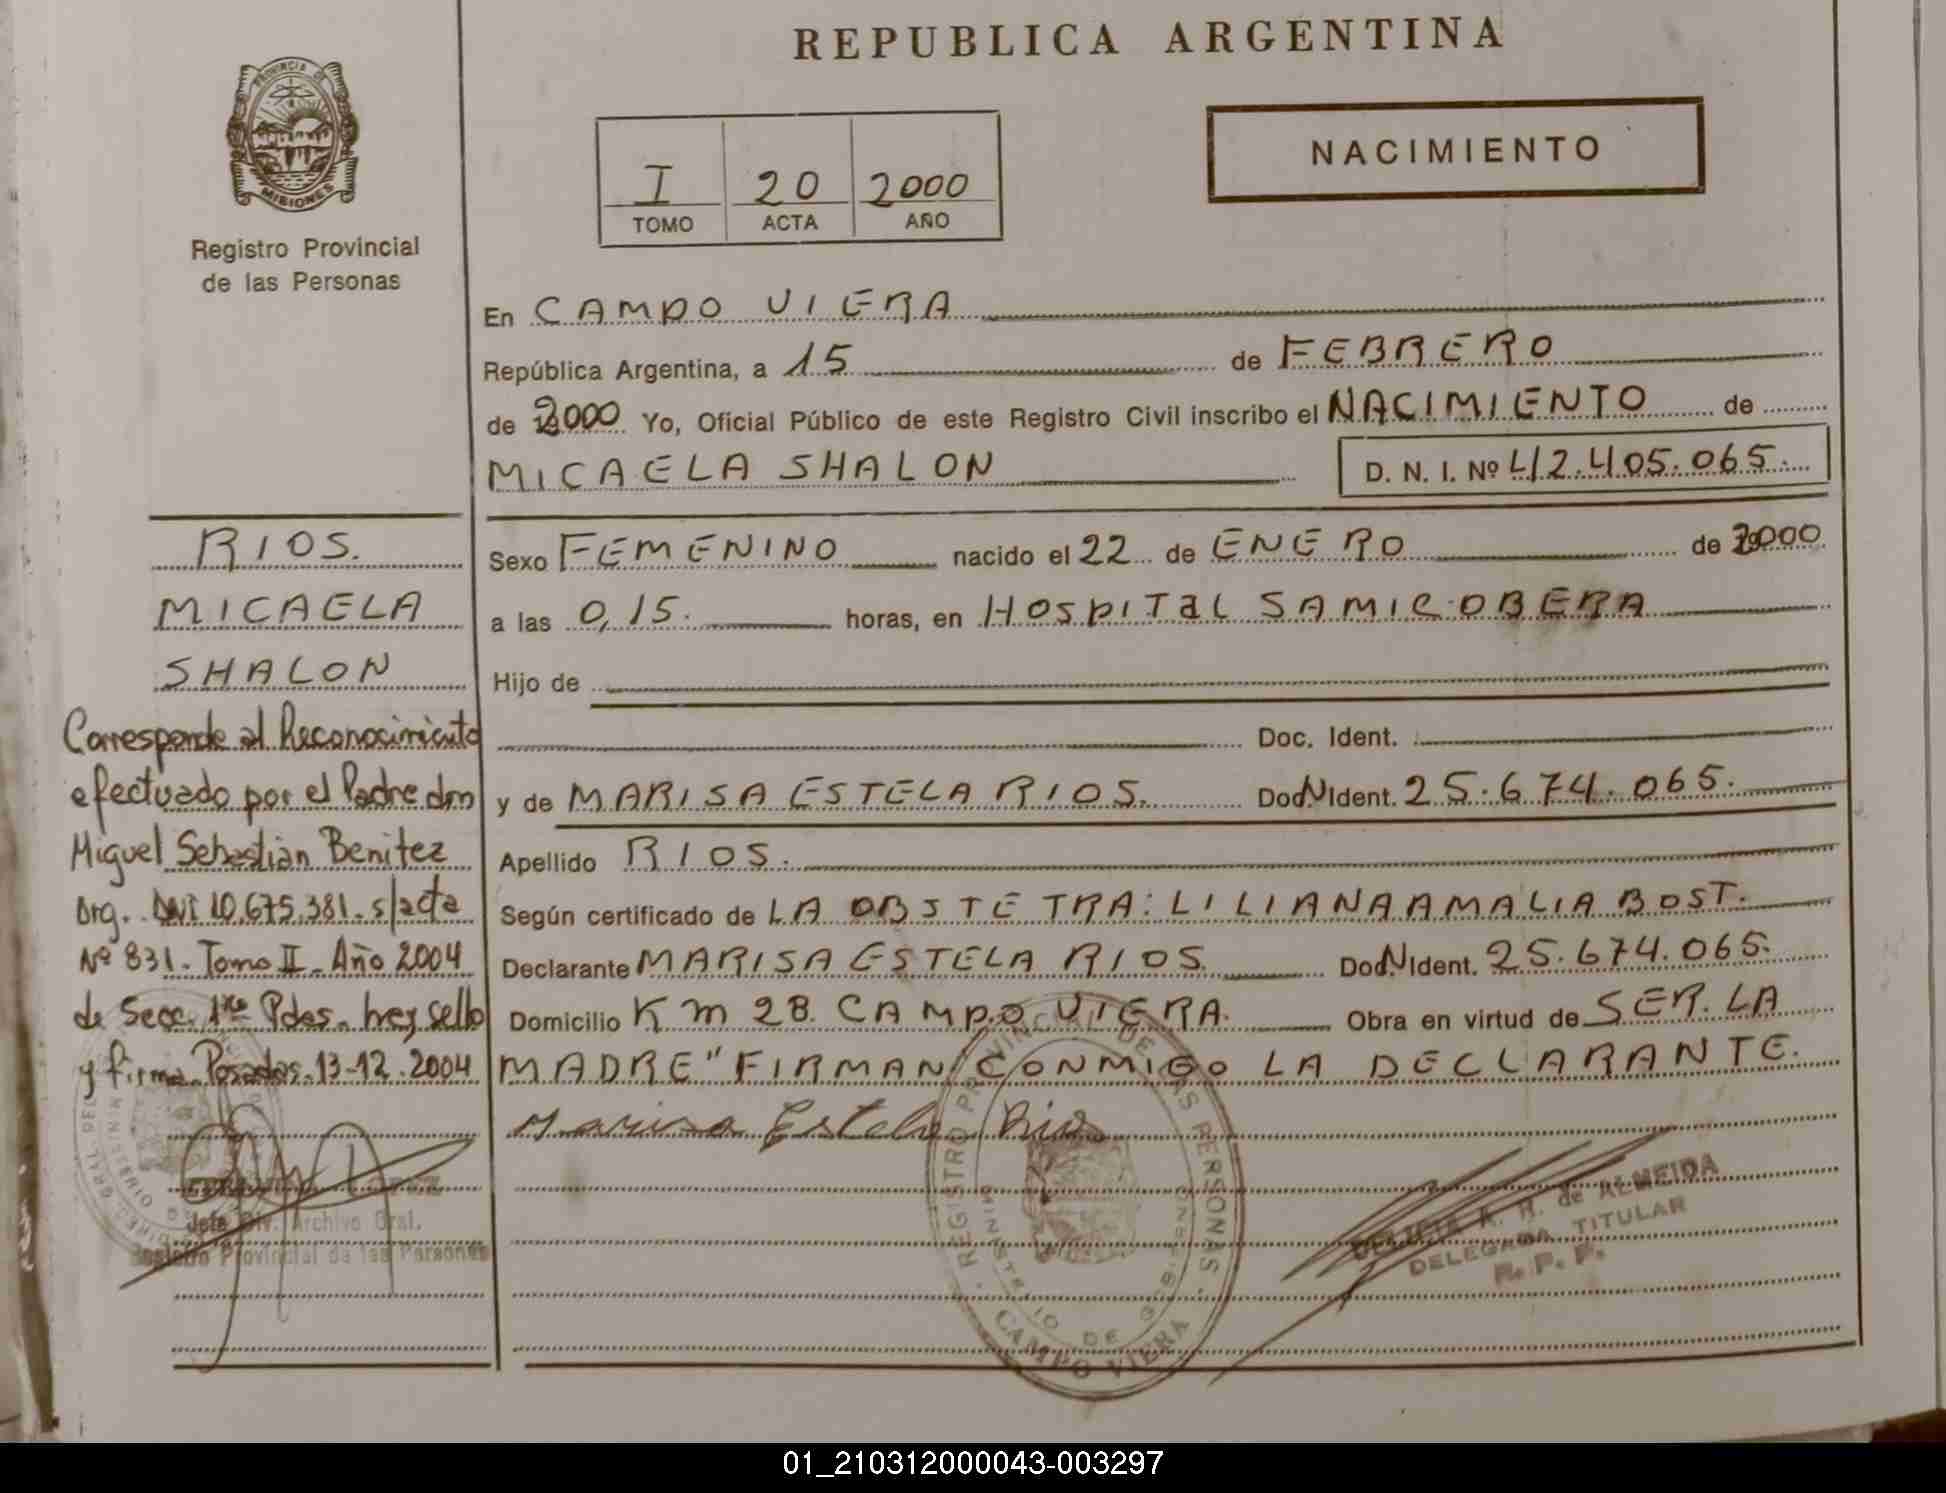 REPUBLICA ARGENTINA
PROVINCIA DE
MISIONES
Registro Provincial
de las Personas
I 20 2000
TOMO ACTA AÑO
NACIMIENTO
En CAMPO VIERA
República Argentina, a 15 de FEBRERO
de 2000 Yo, Oficial Público de este Registro Civil inscribo el NACIMIENTO de
MICAELA SHALON D. N. I. Nº 42.405.065.
Sexo FEMENINO nacido el 22 de ENERO de 2000
a las 0,15. horas, en HOSPITAL SAMIC OBERA
Hijo de
Doc. Ident.
y de MARISA ESTELA RIOS. DocN Ident. 25.674.065.
Apellido RIOS.
Según certificado de LA OBSTETRA: LILIANA AMALIA BOST.
Declarante MARISA ESTELA RIOS. DocN Ident. 25.674.065.
Domicilio Km 28. CAMPO VIERA. Obra en virtud de SER. LA
MADRE" FIRMAN CONMIGO LA DECLARANTE.
Marisa Estela Rios
RIOS.
MICAELA
SHALON
Corresponde al Reconocimiento
efectuado por el Padre don
Miguel Sebastián Benitez
Arg. DNI 10.675.381. s/acta
Nº 831. Tomo II. Año 2004
de Secc. 1ra Pdas.
y firma. Posadas. 13-12.2004
Jefe Div. Archivo Gral.
Registro Provincial de las Personas
REGISTRO PROVINCIAL DE LAS PERSONAS
MINISTERIO DE GOBIERNO
CAMPO VIERA
A. H. de ALMEIDA
DELEGADA TITULAR
R. P. P.
01_210312000043-003297